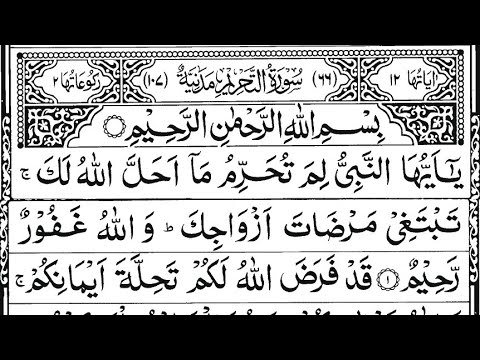 اٰیَاتُهَا ١٢ (٦٦) سُوْرَةُ التَّحْرِیْمِ مَدَنِیَّةٌ (١٠٧) رُكُوْعَاتُهَا ٢
بِسْمِ اللّٰهِ الرَّحْمٰنِ الرَّحِیْمِ
یٰۤاَیُّهَا النَّبِیُّ لِمَ تُحَرِّمُ مَاۤ اَحَلَّ اللّٰهُ لَكَ ۚ
تَبْتَغِیْ مَرْضَاتَ اَزْوَاجِكَ ؕ وَ اللّٰهُ غَفُوْرٌ
رَّحِیْمٌ ﴿١﴾ قَدْ فَرَضَ اللّٰهُ لَكُمْ تَحِلَّةَ اَیْمَانِكُمْ ۚ